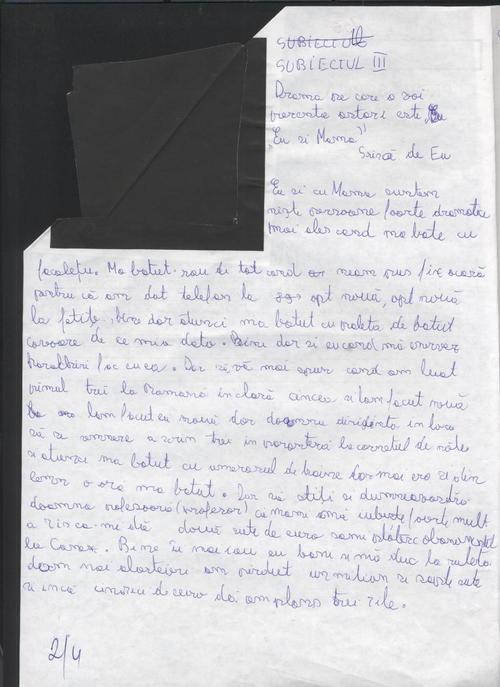 SUBIECTUL
SUBIECTUL III
Drama pe care o voi
prezenta astazi este „Eu
„Eu si Mama"
Scrisă de Eu
Eu si cu Mama suntem
niște persoane foarte dramatice
mai ales cand ma bate cu
facalețu. Ma batut rau de tot cand neam pus fix acasă
pentru că am dat telefon la opt nouă, opt nouă
la fetite bine dar atunci ma batut cu paleta de batut
covoare de ce mia dato. Bine dar si eu cand mă enervez
fac ca ea. Dar să vă mai spun cand am luat
primul trei la Romana in clară a cincea si lam facut nouă
lam facut eu nouă dar doamna diriginta in loc
să si semnere a scris trei in paranteră la carnetul de note
si atunci ma batut cu umerarul de haine
lemn o ora ma batut. Dar să stiti si dumneavoastră
doamna profesoară (profesor) că mami mă iubeste foarte mult
a zis ca-mi dă două sute de euro sami plătesc abonamentul
la Canar. Bine iti mai iau eu bani si mă duc la ruleta
doam mai alartaieri am pierdut un milion si sapte sute
si inca cinzeci de euro doi am plans trei zile.
2/4